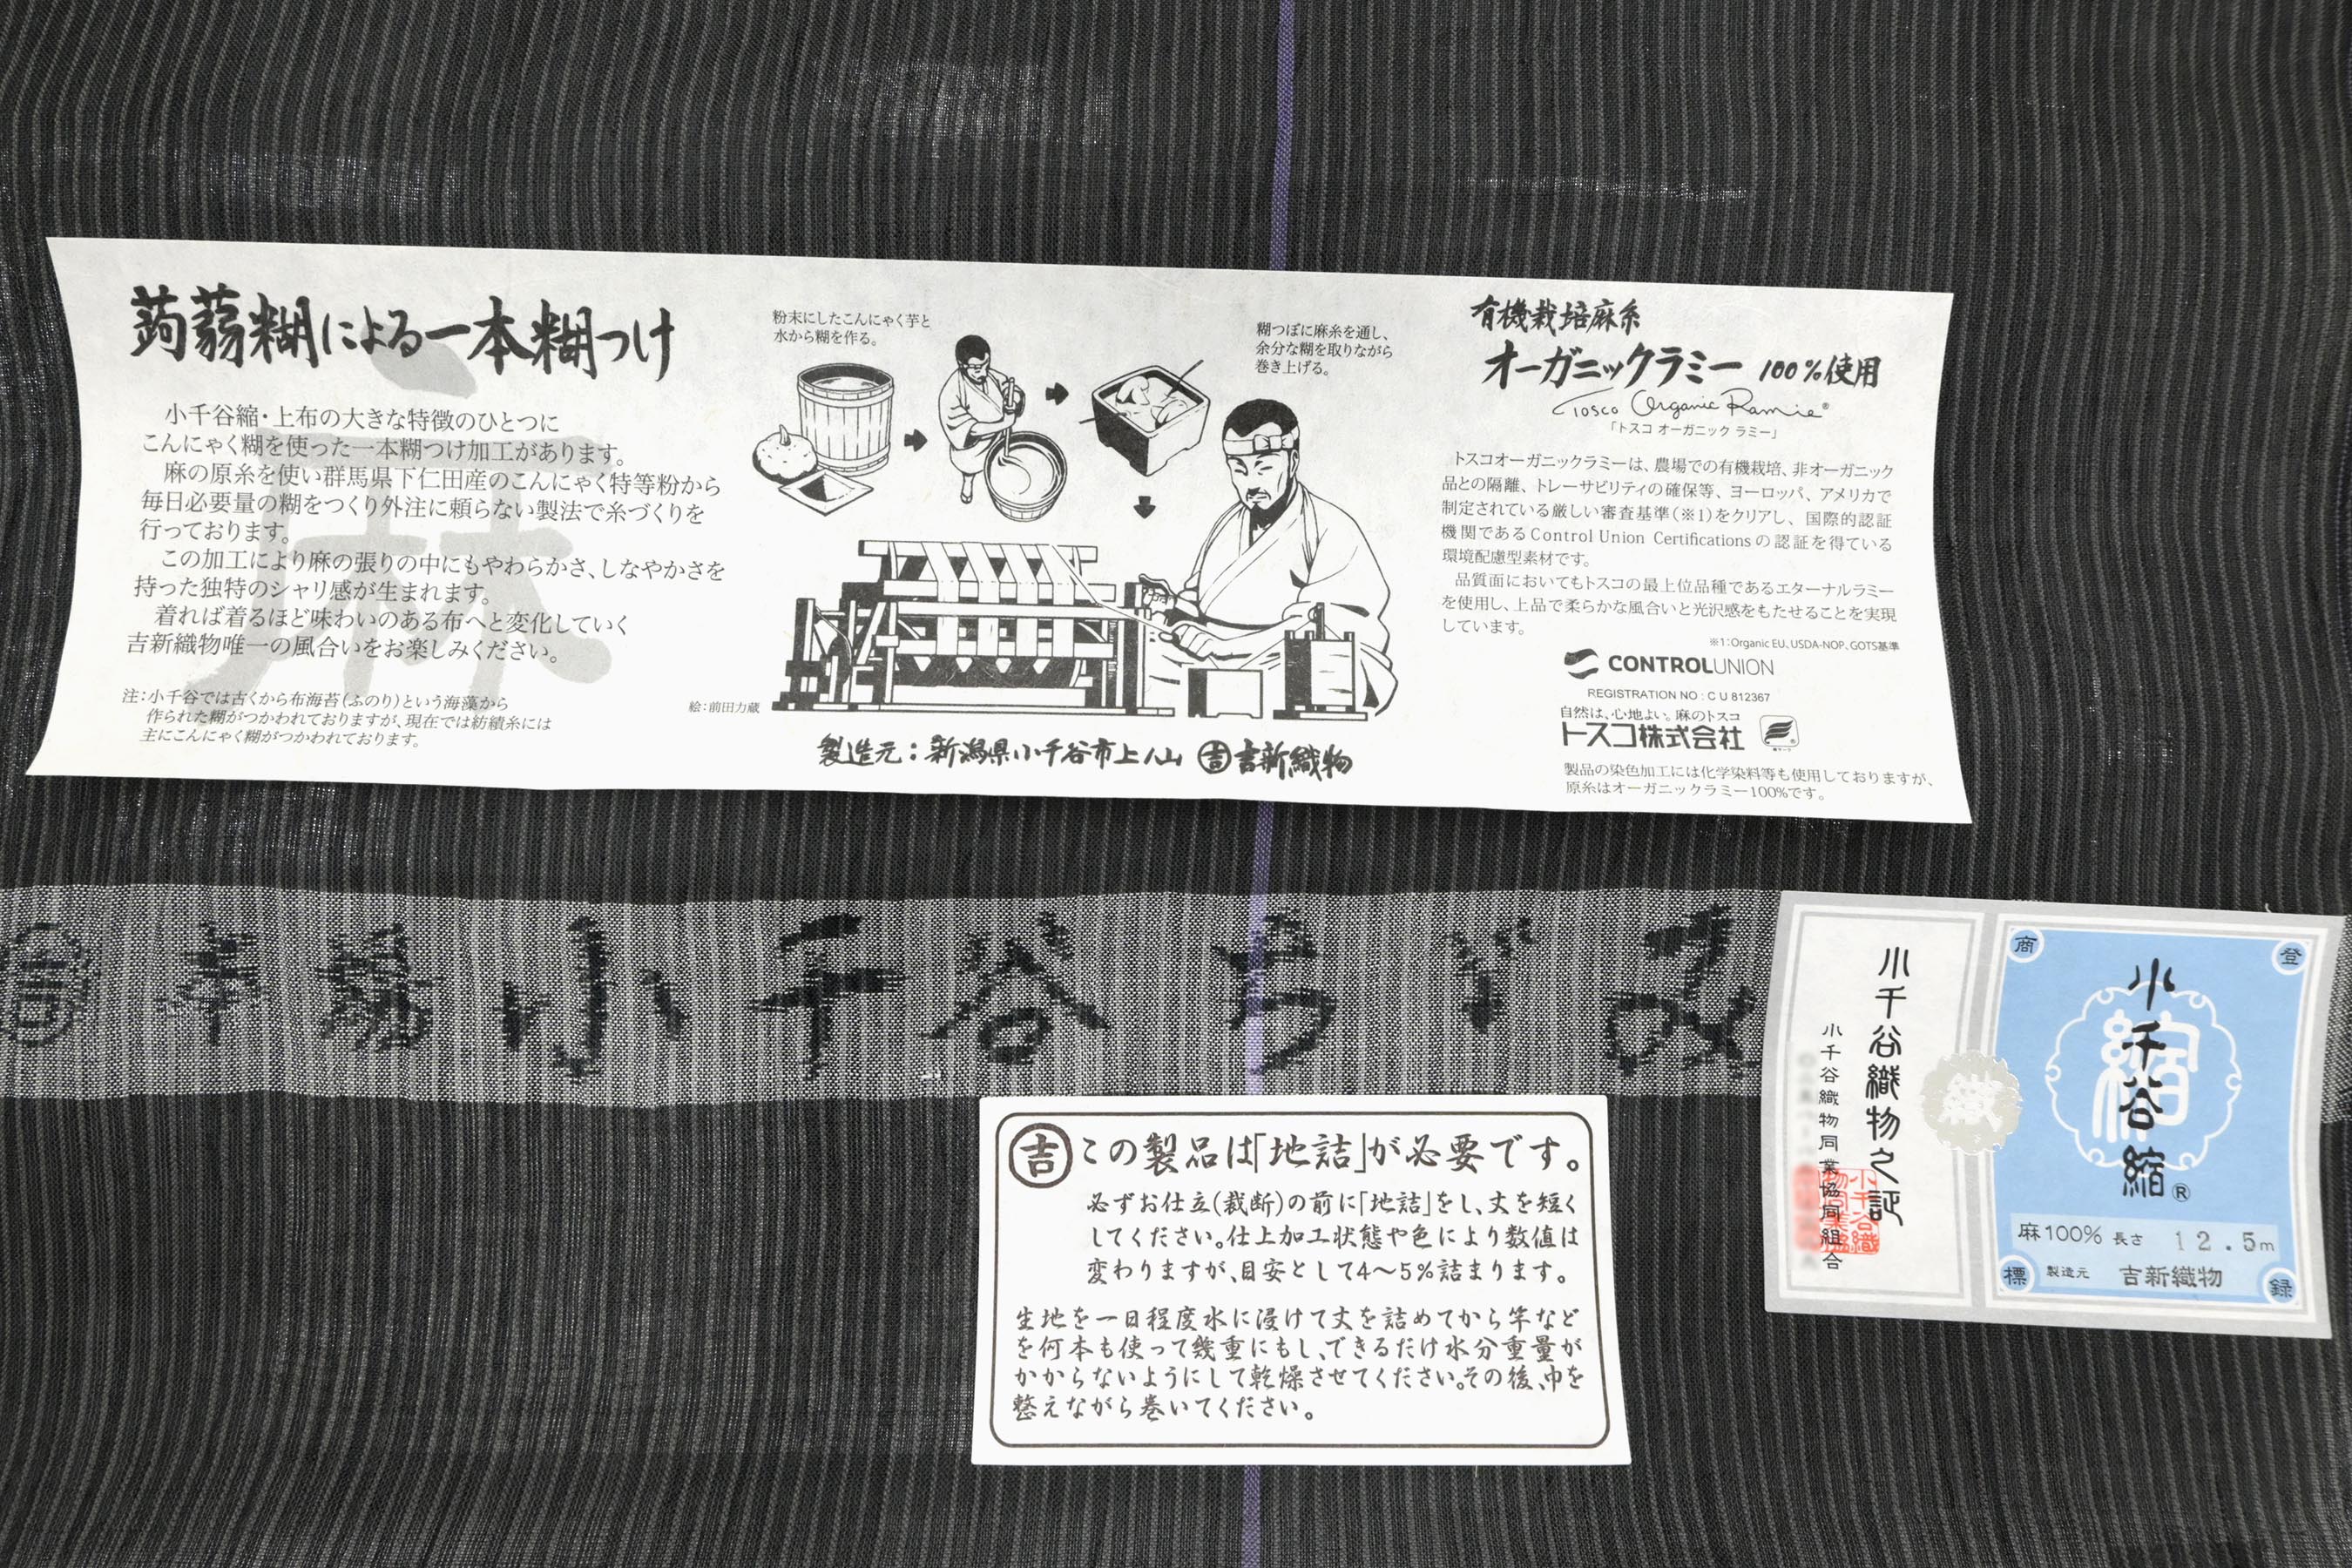 蒟蒻糊による一本糊つけ
小千谷縮・上布の大きな特徴のひとつに
こんにゃく糊を使った一本糊つけ加工があります。
麻の原糸を使い群馬県下仁田産のこんにゃく特等粉から
毎日必要量の糊をつくり外注に頼らない製法で糸づくりを
行っております。
この加工により麻の張りの中にもやわらかさ、しなやかさを
持った独特のシャリ感が生まれます。
着れば着るほど味わいのある布へと変化していく
吉新織物唯一の風合いをお楽しみください。
注:小千谷では古くから布海苔(ふのり)という海藻から
作られた糊がつかわれておりますが、現在では紡績糸には
主にこんにゃく糊がつかわれております。
麻
粉末にしたこんにゃく芋と
水から糊を作る。
糊つぼに麻糸を通し、
余分な糊を取りながら
巻き上げる。
絵:前田力蔵
製造元:新潟県小千谷市上ノ山 吉 吉新織物
有機栽培麻糸
オーガニックラミー 100%使用
Tosco Organic Ramie®
「トスコ オーガニック ラミー」
トスコオーガニックラミーは、農場での有機栽培、非オーガニック
品との隔離、トレーサビリティの確保等、ヨーロッパ、アメリカで
制定されている厳しい審査基準(※1)をクリアし、国際的認証
機関であるControl Union Certificationsの認証を得ている
環境配慮型素材です。
品質面においてもトスコの最上位品種であるエターナルラミー
を使用し、上品で柔らかな風合いと光沢感をもたせることを実現
しています。
※1:Organic EU、USDA-NOP、GOTS基準
CONTROLUNION
REGISTRATION NO : C U 812367
自然は、心地よい。麻のトスコ
トスコ株式会社
製品の染色加工には化学染料等も使用しておりますが、
原糸はオーガニックラミー100%です。
吉 本場小千谷ちゞみ
吉 この製品は「地詰」が必要です。
必ずお仕立(裁断)の前に「地詰」をし、丈を短く
してください。仕上加工状態や色により数値は
変わりますが、目安として4〜5%詰まります。
生地を一日程度水に浸けて丈を詰めてから竿など
を何本も使って幾重にもし、できるだけ水分重量が
かからないようにして乾燥させてください。その後、巾を
整えながら巻いてください。
小千谷織物之証
小千谷織物同業協同組合
織
商
登
小千谷縮®
縮
麻100% 長さ 12.5m
標 製造元 吉新織物 録